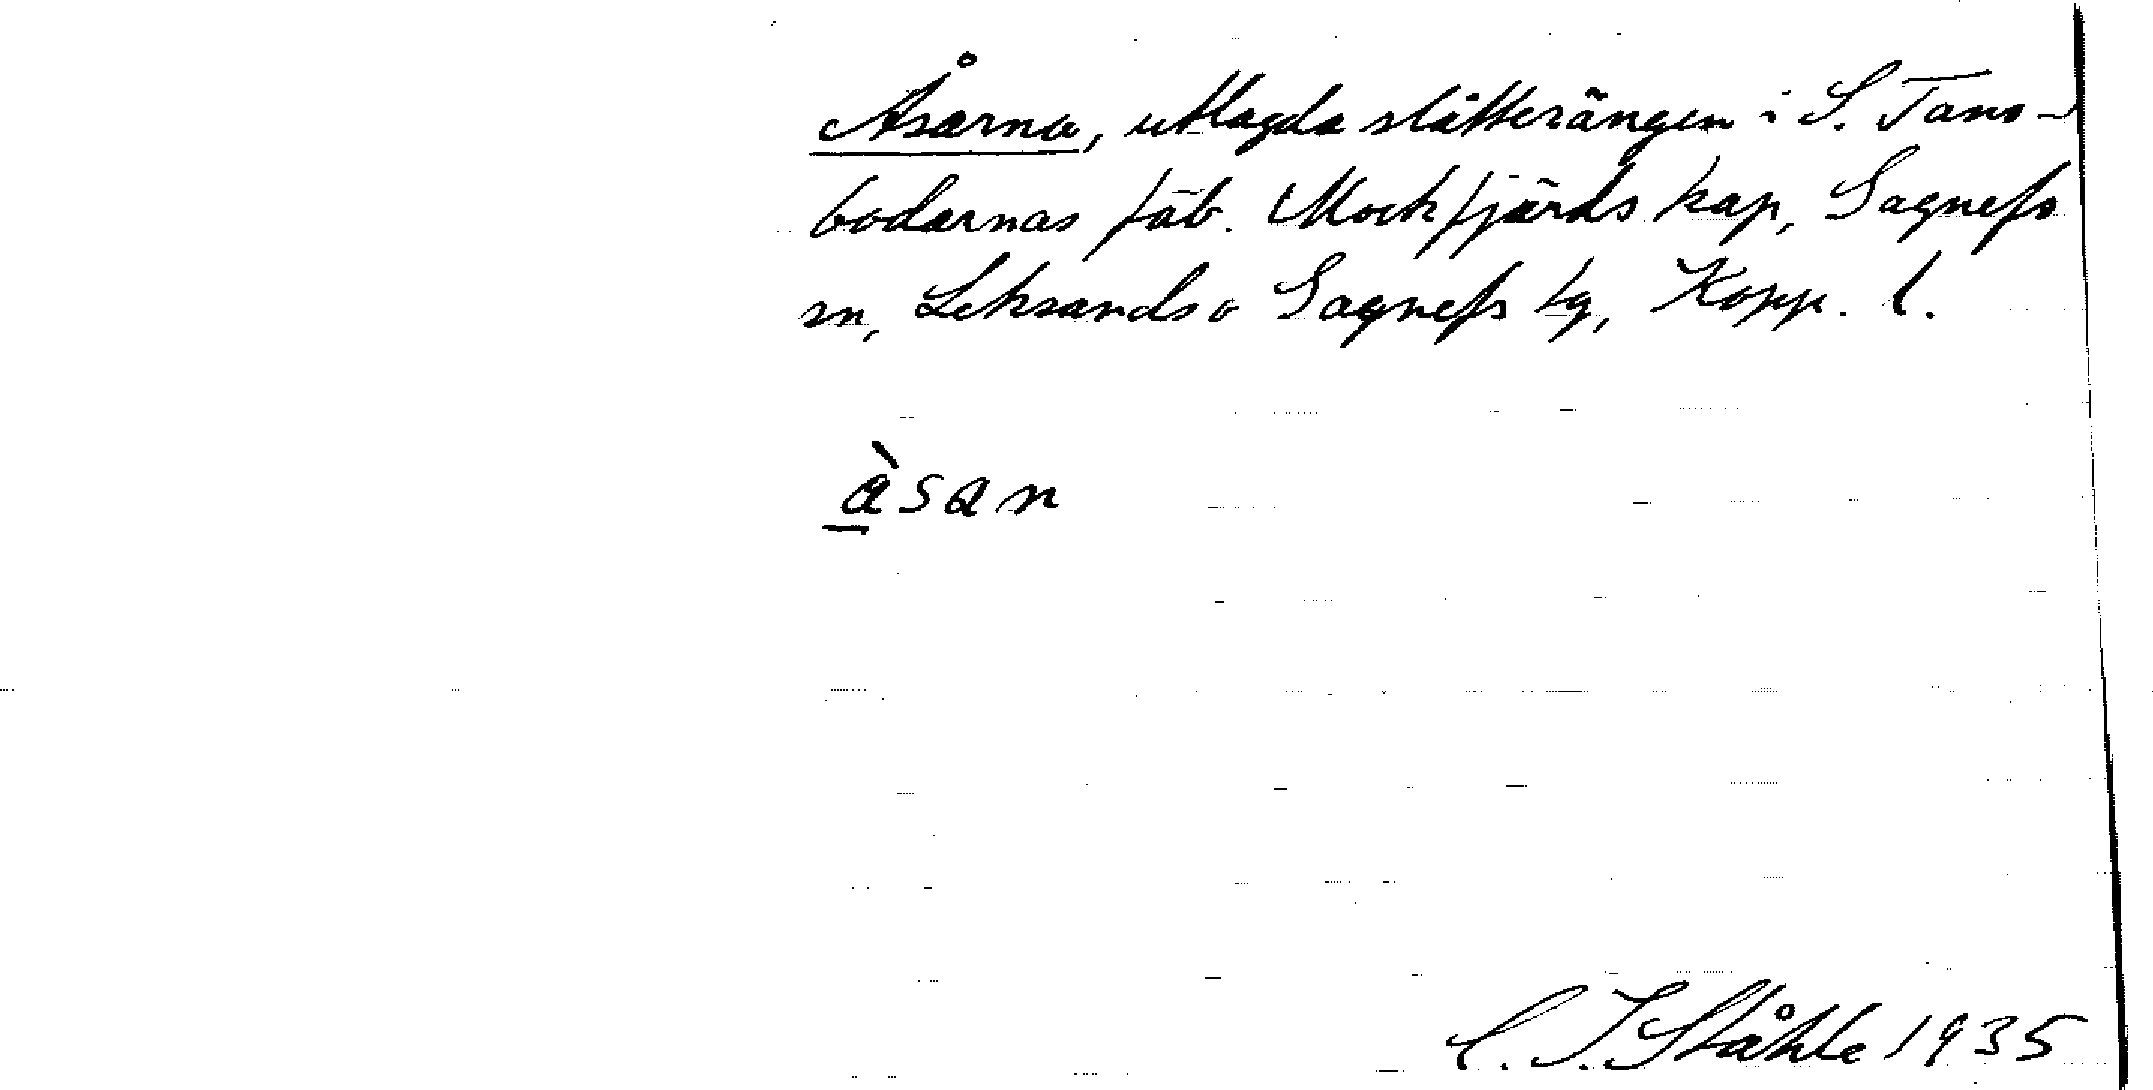 Åsarna, utlagda slåtterängen i S. Tans-
bodarnas fäb. Mockfjärds kap, Gagnefs
sn, Leksands o Gagnefs tg, Kopp. l.
àsan
C. I. Ståhle 1935